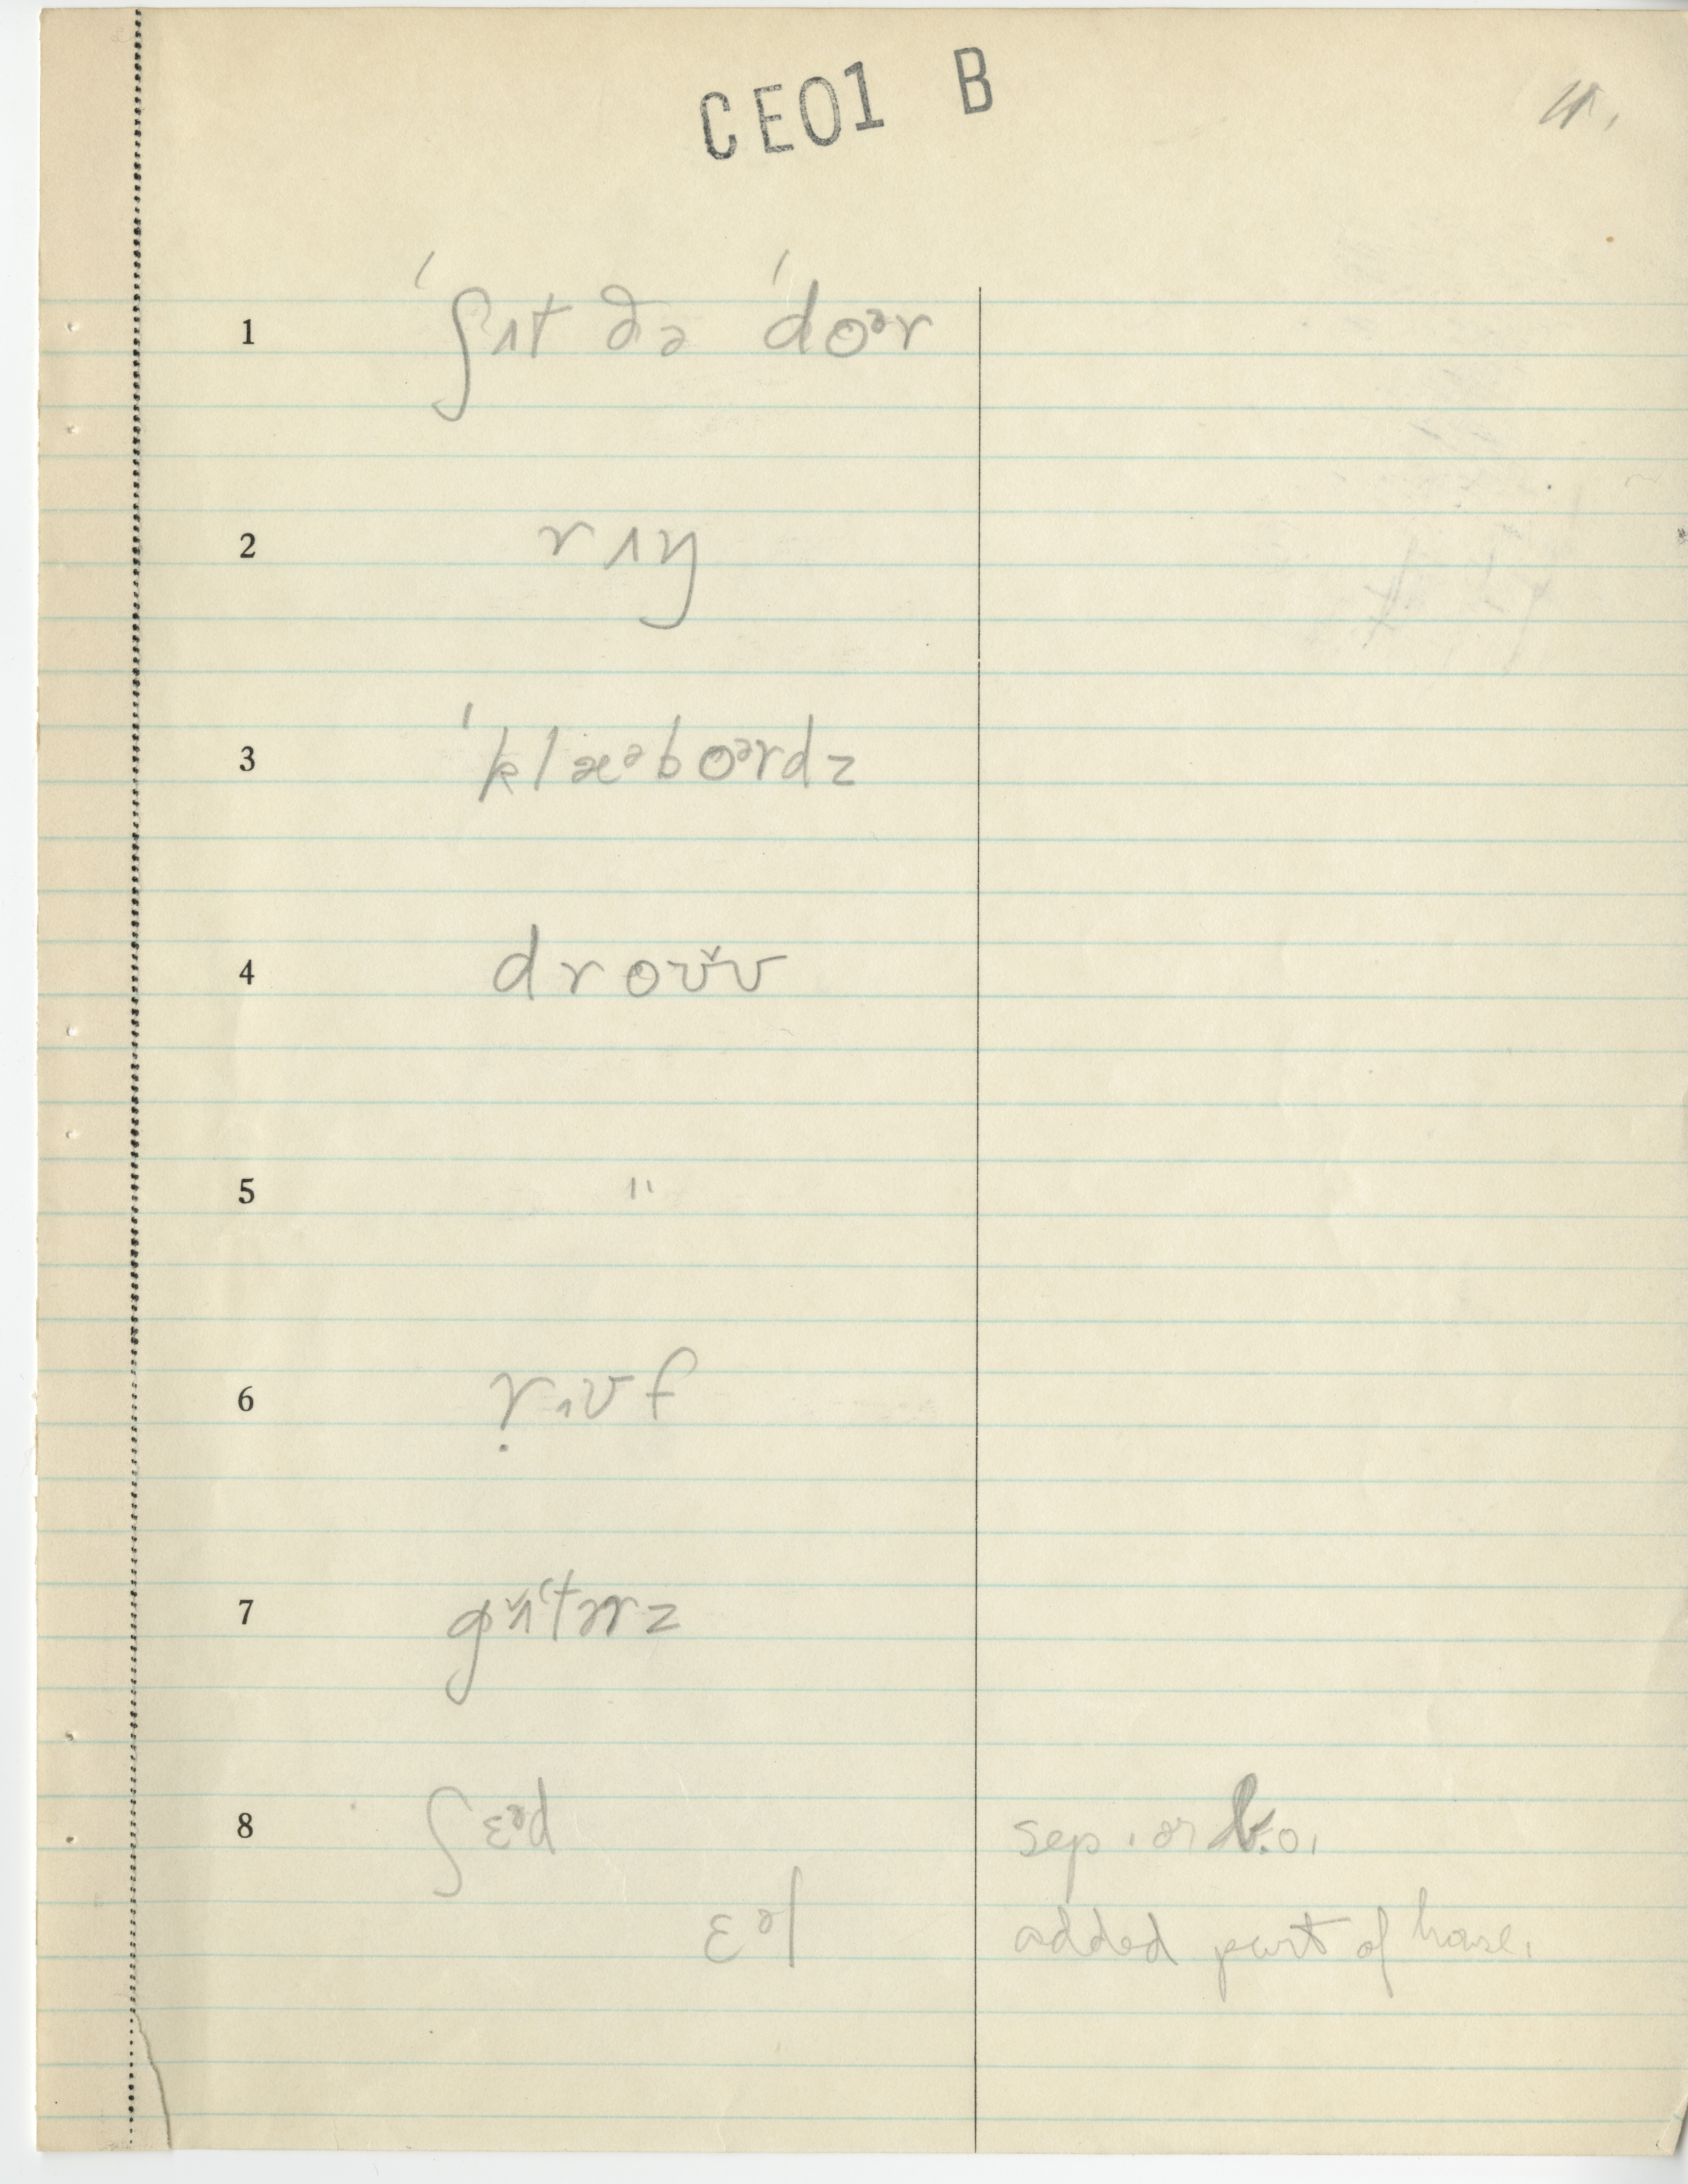 CE01 B
11.
1 ˈʃɪt ðə ˈdoᵊr
2
3 ˈklæᵊboᵊrdz
4 droʊ̌v
5 "
6 ṛɪʊf
7
8 ʃɛᵊd sep. or b.o.
ɛᵊl added part of house.